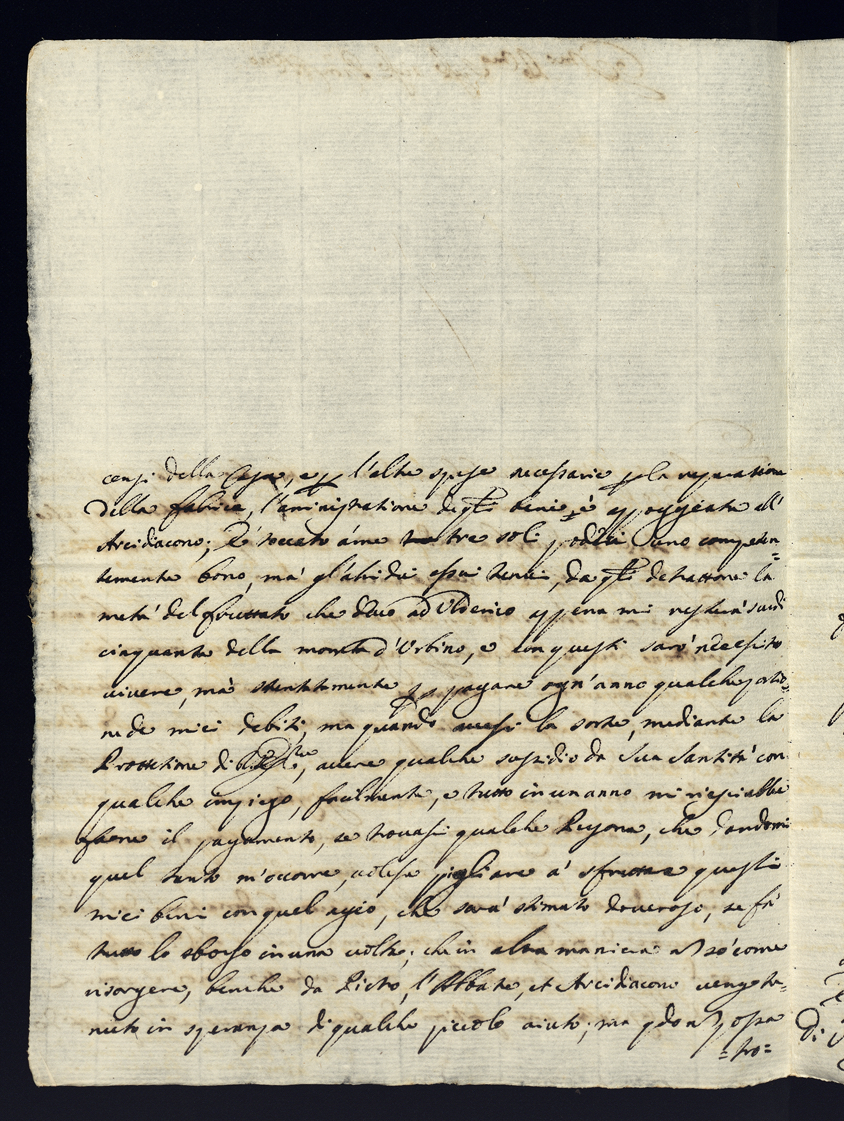 censi della Casa, e p l'altre spese necessarie p la reparatione
della fabrica, l'aministratione di qti beni è appoggiata all'
Arcidiacono; È toccato à me tre soli poderi uno competen=
temente bono, mà gl'altri dui assai tenui, da qti detrattone la
metà del fruttato che devo ad Ulderico appena mi resterà scudi
cinquanta della moneta d'Urbino, e con questi sarò necesito
vivere, mà stentatamente p pagare ogn'anno qualche portio=
ne de miei debiti, ma quando avessi la sorte, mediante la
Protetione di, avere qualche susidio da Sua Santità con
qualche impiego, facilmente, e tutto in un anno mi riescirebbe
farne il pagamento, se trovassi qualche Persona, che dandomi
quel tanto m'occorre, volesse pigliare a' sfruttare questi
miei beni con quel agio, che sarà stimato doveroso, se fà
tutto lo sborso in una volta; che in altra maniera nò sò come
risorgere, benche da Pietro, l'Abbate, et Arcidiacono vengo te=
nuto in speranza di qualche piccolo aiuto; ma qdo nò possa
=tro=
Di